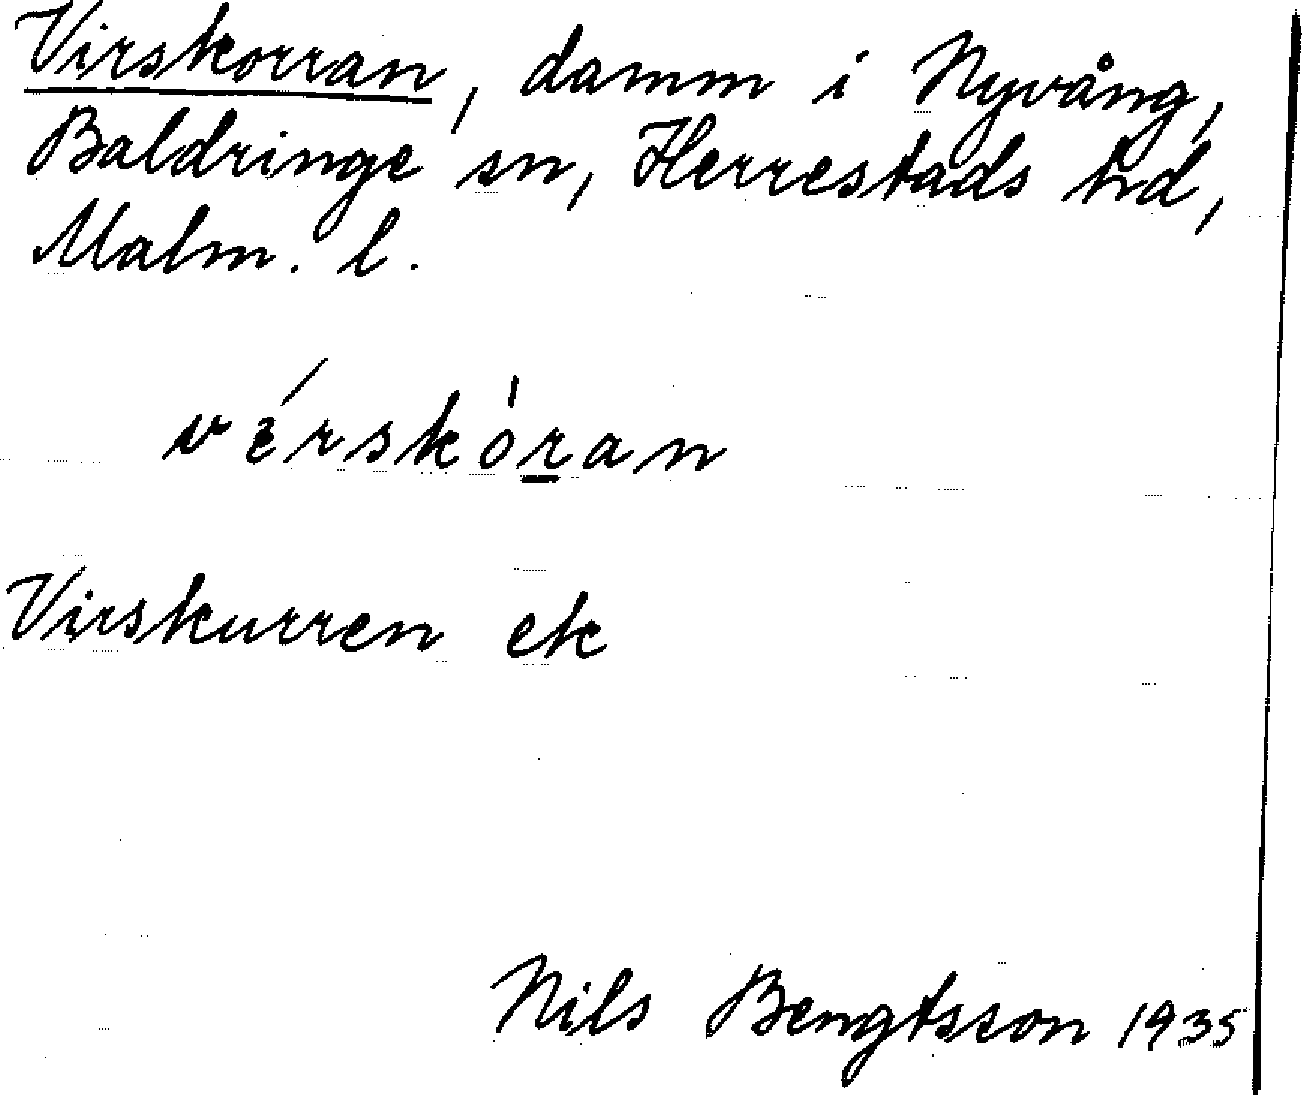 Virskorran, damm i Nyvång,
Baldringe sn, Herrestads hd,
Malm. l.
vérskòran
Virskurren ek
Nils Bengtsson 1935